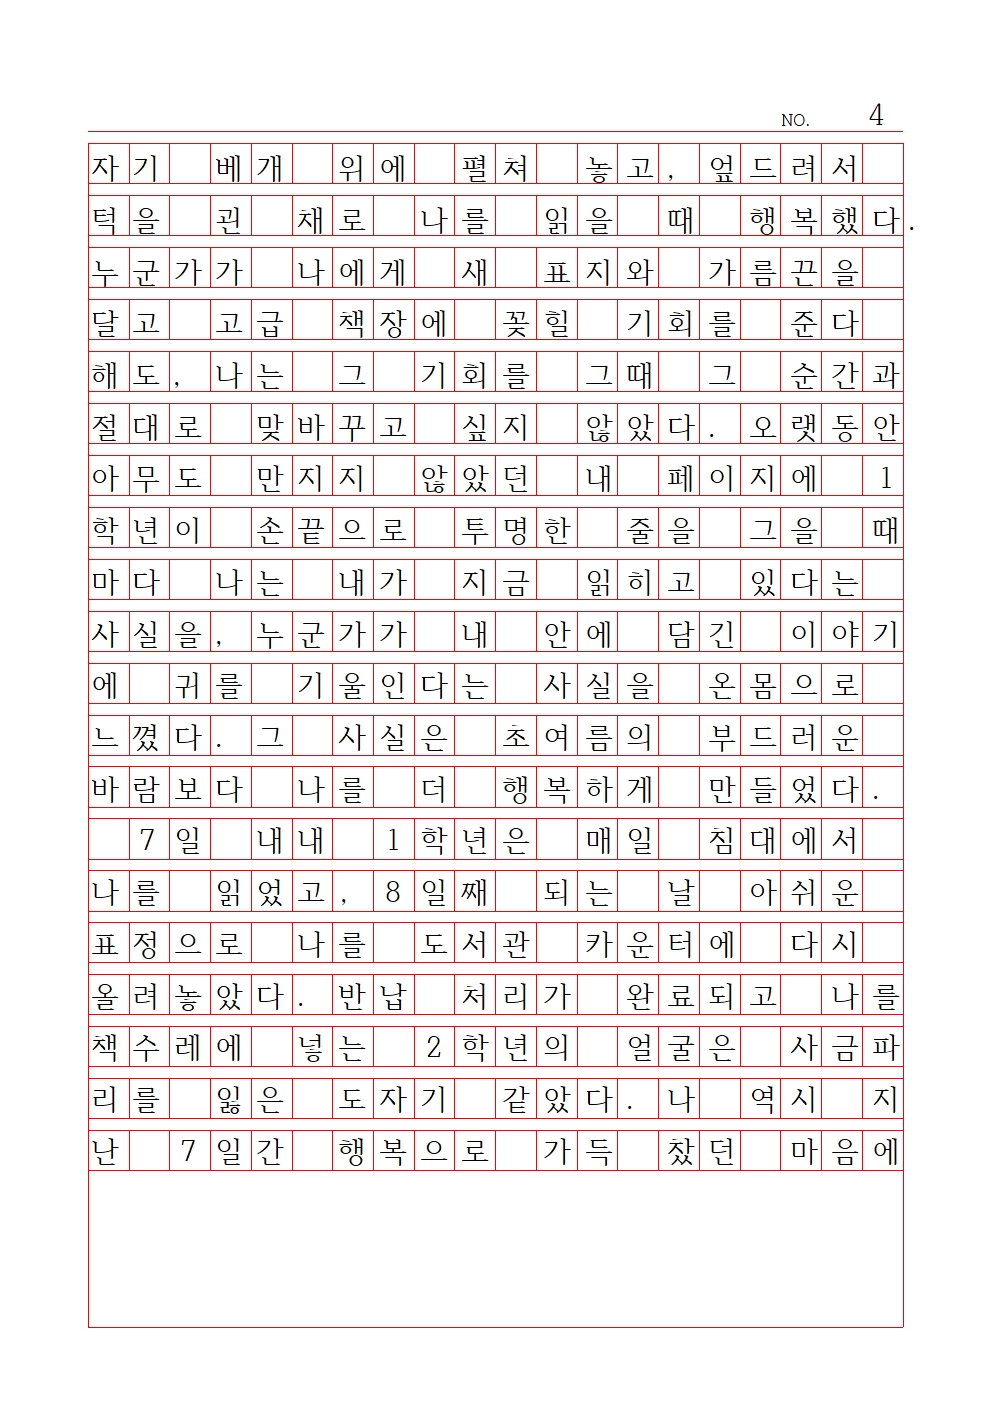 NO. 4
자기 베개 위에 펼쳐 놓고, 엎드려서
턱을 괸 채로 나를 읽을 때 행복했다.
누군가가 나에게 새 표지와 가름끈을
달고 고급 책장에 꽂힐 기회를 준다
해도, 나는 그 기회를 그때 그 순간과
절대로 맞바꾸고 싶지 않았다. 오랫동안
아무도 만지지 않았던 내 페이지에 1
학년이 손끝으로 투명한 줄을 그을 때
마다 나는 내가 지금 읽히고 있다는
사실을, 누군가가 내 안에 담긴 이야기
에 귀를 기울인다는 사실을 온몸으로
느꼈다. 그 사실은 초여름의 부드러운
바람보다 나를 더 행복하게 만들었다.
7일 내내 1학년은 매일 침대에서
나를 읽었고, 8일째 되는 날 아쉬운
표정으로 나를 도서관 카운터에 다시
올려놓았다. 반납 처리가 완료되고 나를
책수레에 넣는 2학년의 얼굴은 사금파
리를 잃은 도자기 같았다. 나 역시 지
난 7일간 행복으로 가득 찼던 마음에